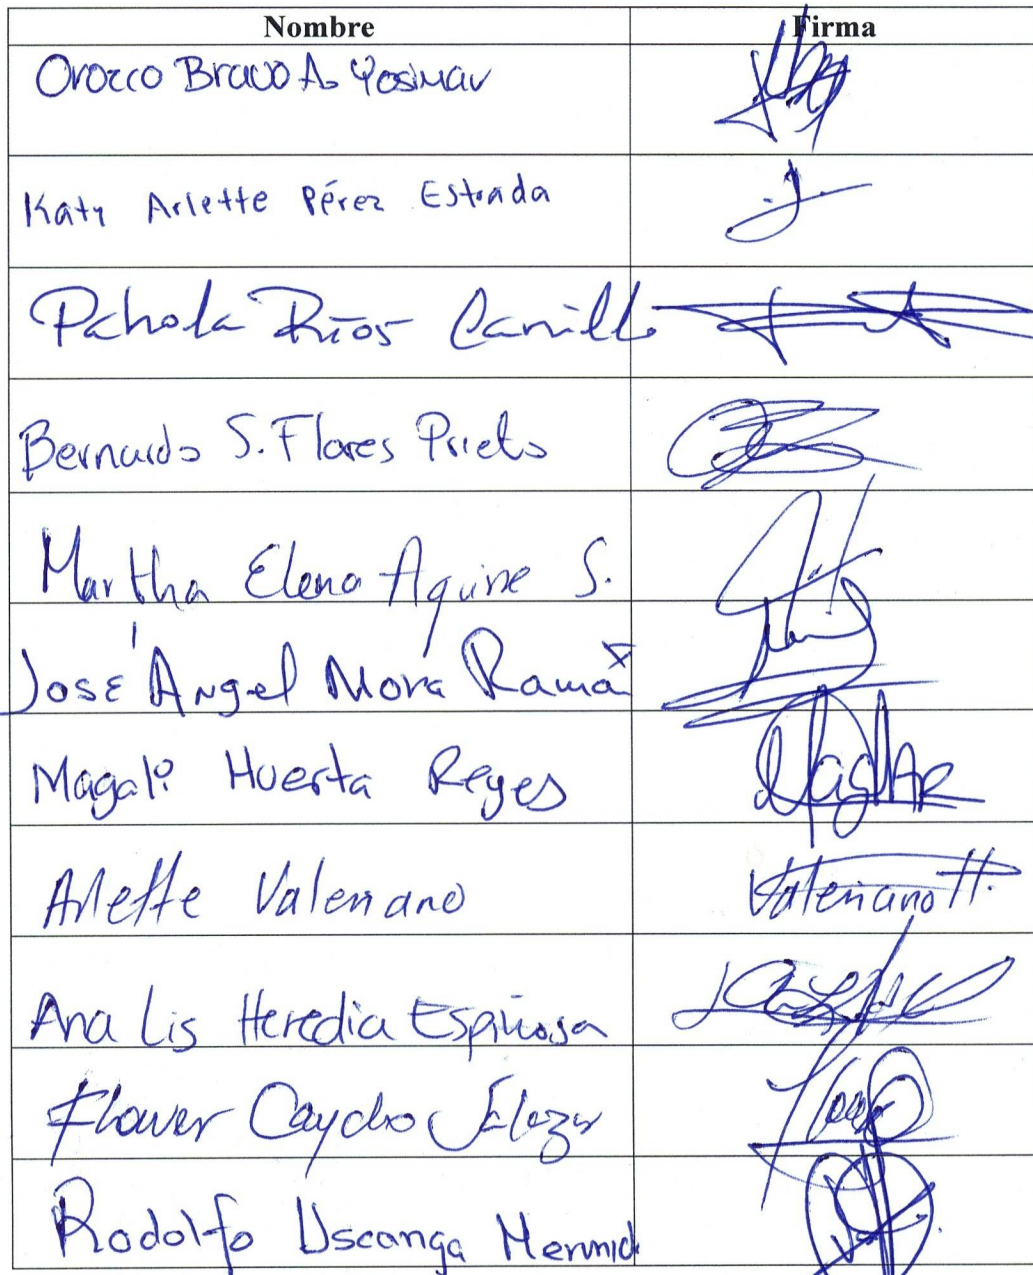 Nombre Firma
Orozco Bravo A. Yosimar
Katy Arlette Pérez Estrada
Pahola Ríos Carrillo
Bernardo S. Flores Prieto
Martha Elena Aguirre S.
José Ángel Mora
Magali Huerta Reyes
Arlette Valeriano Valeriano H.
Ana Lis Heredia Espinosa
Flower Caycho
Rodolfo Uscanga